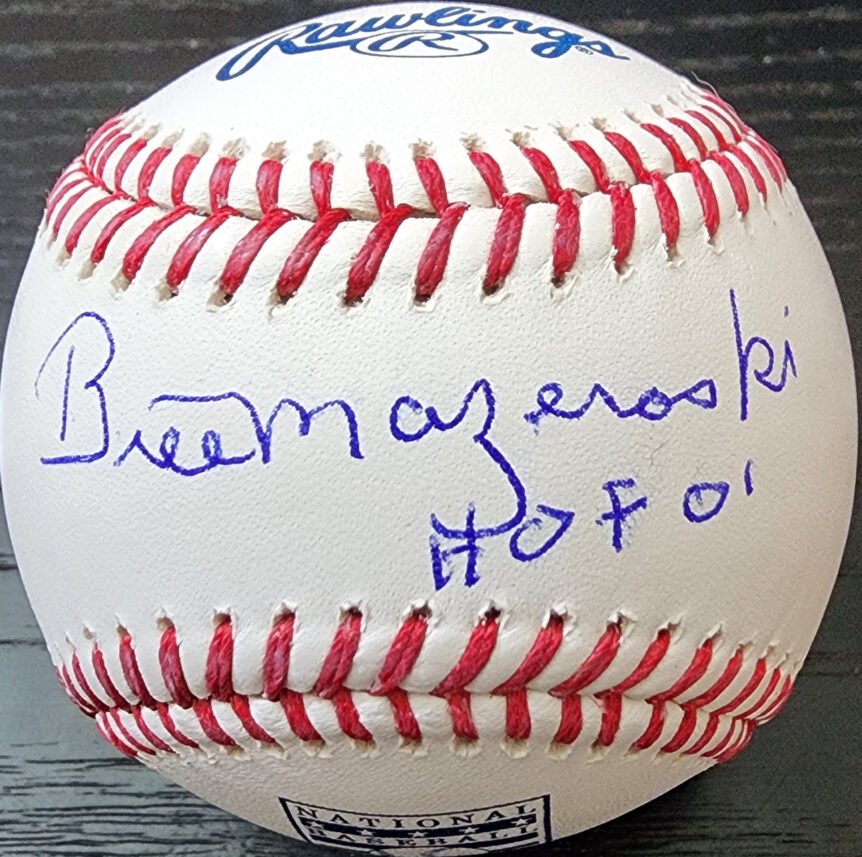 Rawlings®
R
Bill Mazeroski
HOF 01
NATIONAL
BASEBALL